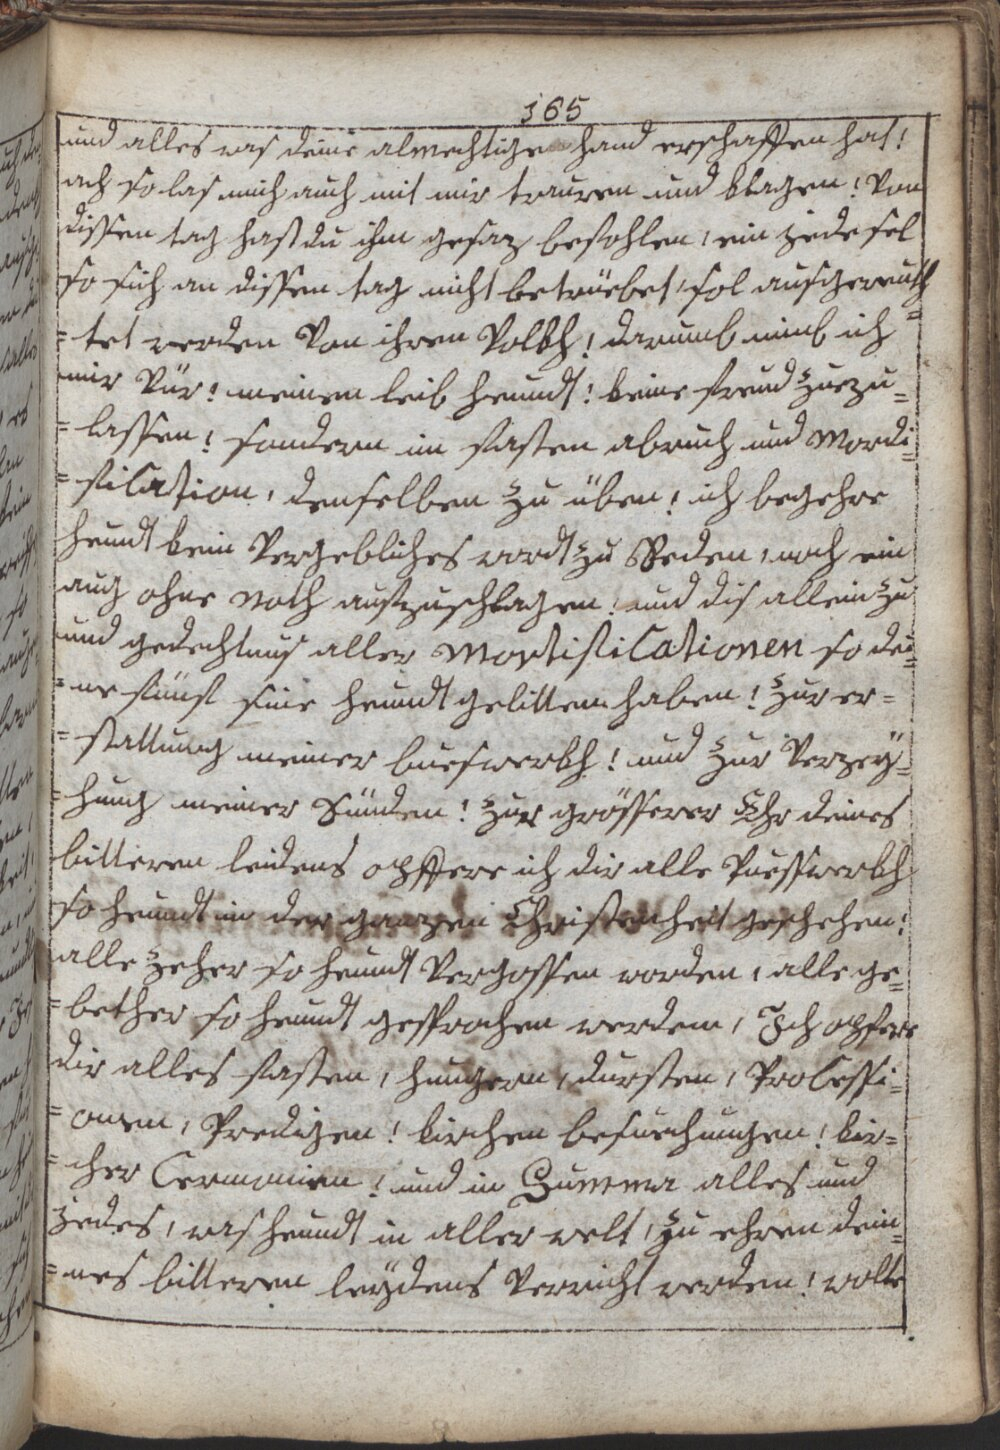 165
und alles was deine almechtige hand erschaffen hat!
ach so las mich auch mit mir trauren und klagen! Von
dissen tag hast du ihm gesaz befohlen, ein jede sel
so sich an dissen tag nicht betrüebet, sol ausgereuth
=tet werden von ihren Volkh! darumb nimb ich
mir Vür! meinen leib heundt! keine freud zuezu=
=lassen! sondern im fasten abruch und Mordi=
=fication, denselben zu üben! ich begehre
heundt kein Vergebliches wordt zu Reden, noch ein
aug ohne Noth aufzuschlagen! und dis allein zu
und gedechtnus aller Mortificationen so dei=
=ne fünf sine heundt gelitten haben! zur er=
=stattung meiner buefwerkh! und zur Verzey=
=hung meiner Sünden! zur grösserer Ehr deines
bitteren leidens opffere ich dir alle Puesswerkh
so heundt in der ganzen Christenheit geschehen!
alle zeher so heundt Vergossen worden, alle ge=
=bether so heundt gesprochen werden, Ich opfere
dir alles fasten, hungern, dursten, Processi=
=onen, Predigen! kirchen besuechungen! kir=
=cher Cermonien! und in Summa alles und
jedes, was heundt in aller welt, zu ehren dein=
=nes bitteren leydens Verricht werden! wolte